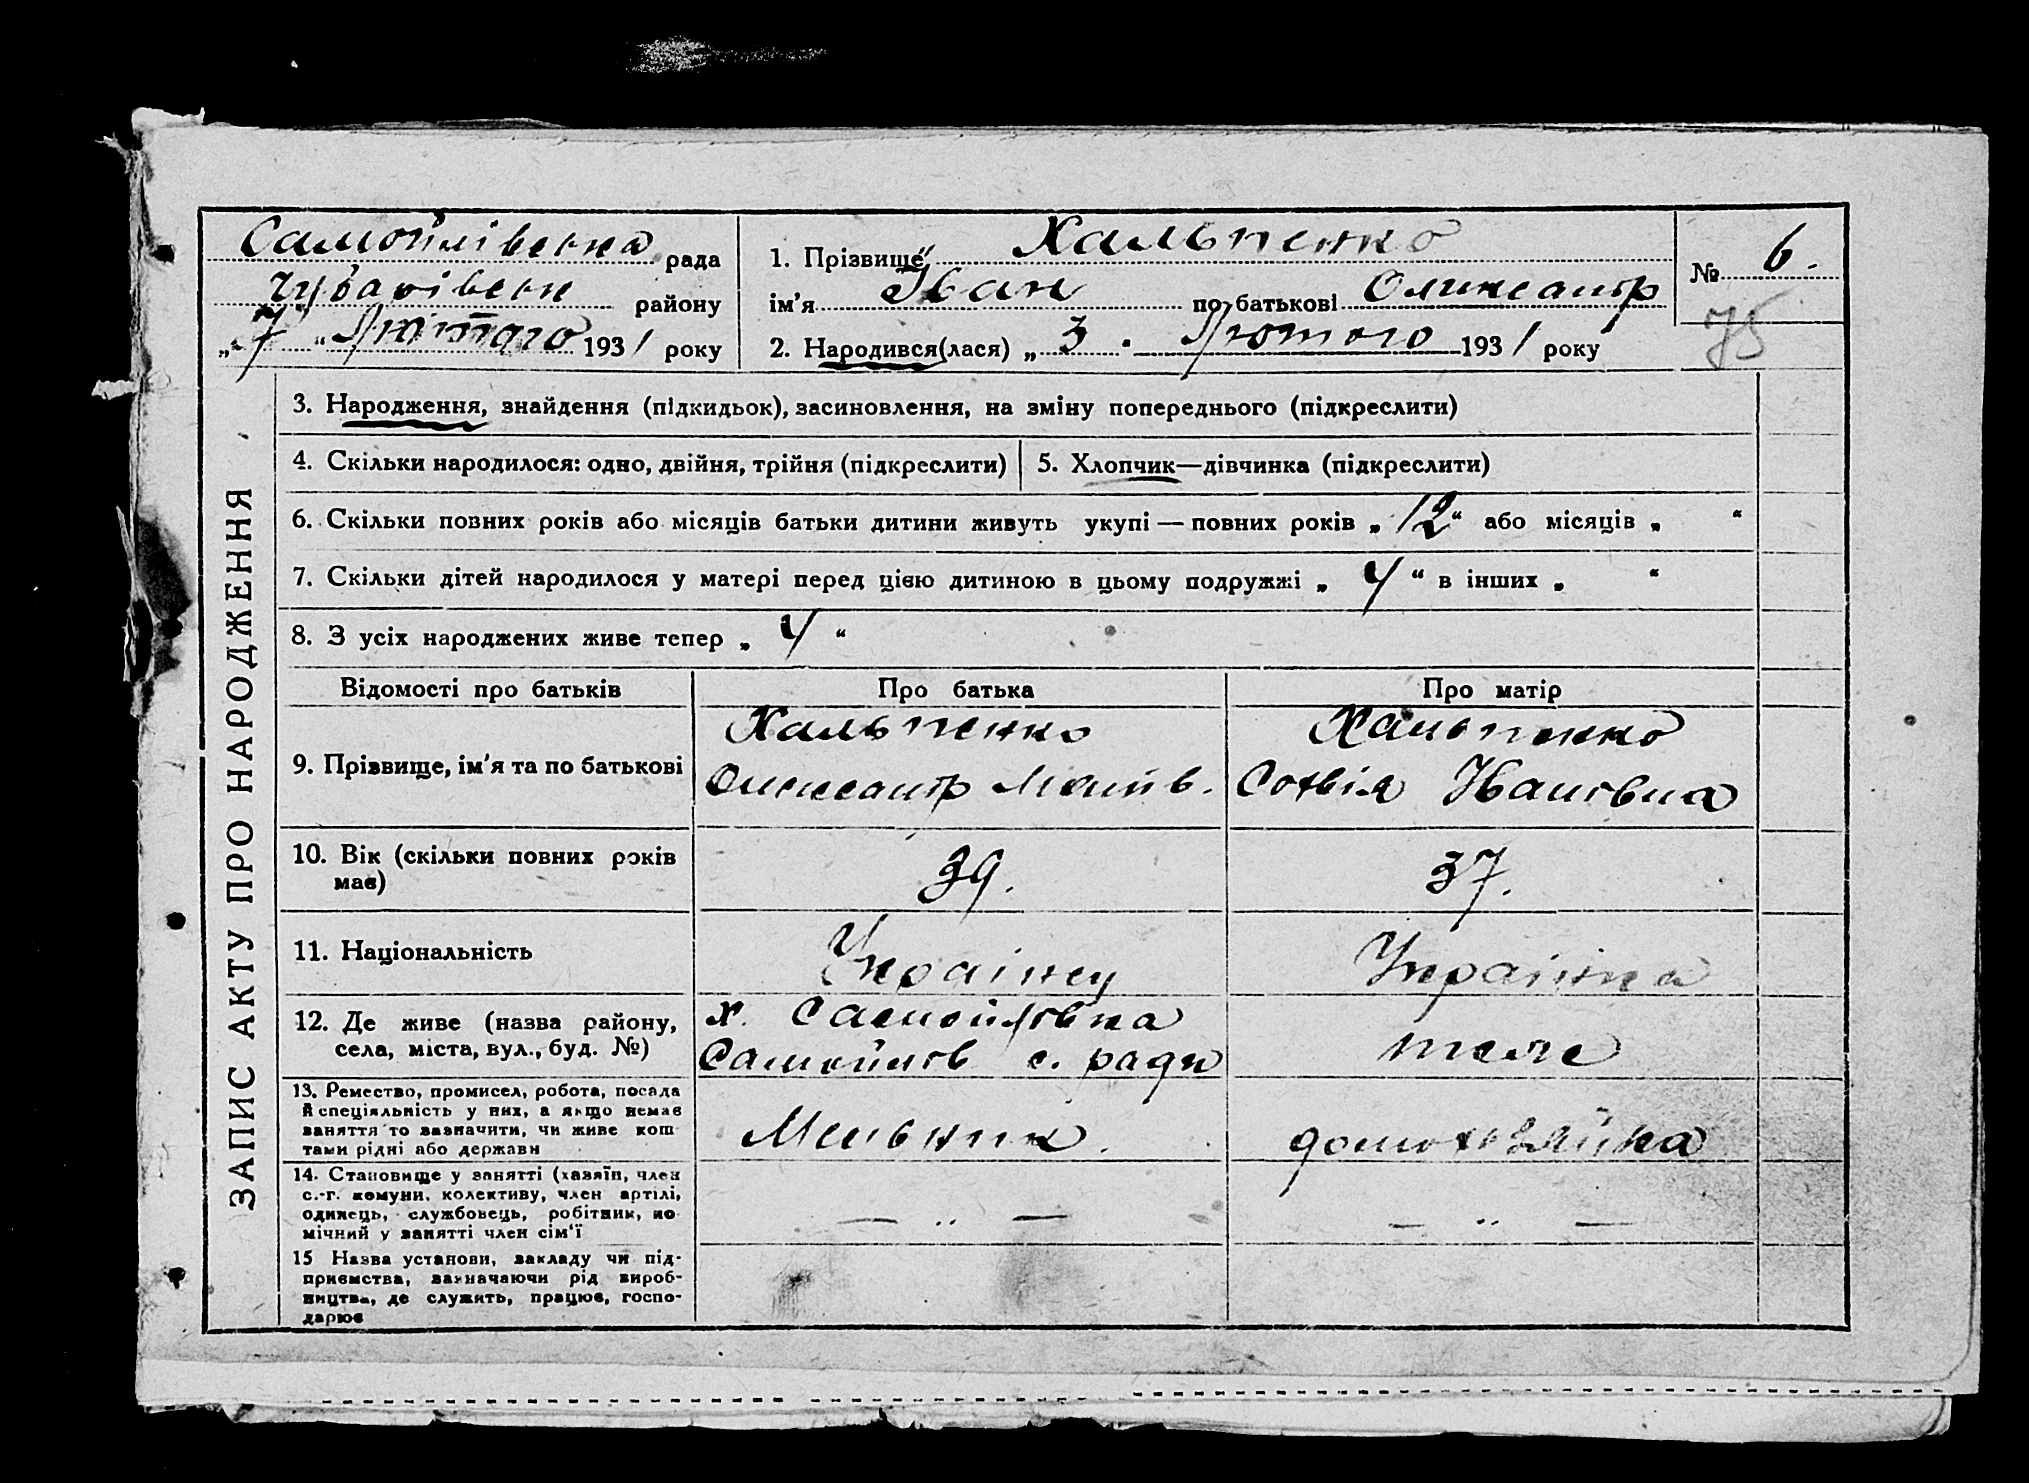 Самойлівська рада
Чубарівськ району
„7“ Лютого 1931 року
1. Прізвище Хальпенко
ім’я Іван по батькові Олександр
2. Народився(лася) „3. Лютого 1931 року
№ 6.
75
ЗАПИС АКТУ ПРО НАРОДЖЕННЯ
3. Народження, знайдення (підкидьок), засиновлення, на зміну попереднього (підкреслити)
4. Скільки народилося: одно, двійня, трійня (підкреслити)
5. Хлопчик—дівчинка (підкреслити)
6. Скільки повних років або місяців батьки дитини живуть укупі — повних років „12“ або місяців „ “
7. Скільки дітей народилося у матері перед цією дитиною в цьому подружжі „4“ в інших „ “
8. З усіх народжених живе тепер „4“
Відомості про батьків Про батька Про матір
9. Прізвище, ім’я та по батькові
Хальпенко
Олександр Матв.
Хальпенко
Софвія Івановна
10. Вік (скільки повних років
має)
39.
37.
11. Національність
Українец
Українка
12. Де живе (назва району,
села, міста, вул., буд. №)
х. Самойлівка
Самойлів с. ради
теже
13. Ремество, промисел, робота, посада
й спеціяльність у них, а якщо немає
заняття то зазначити, чи живе кош
тами рідні або держави
Мельник.
домохозяйка
14. Становище у занятті (хазяїн, член
с.-г. комуни, колективу, член артілі,
одинець, службовець, робітник, по
мічний у занятті член сім‘ї
— „ —
— „ —
15 Назва установи, закладу чи під-
приємства, зазначаючи рід вироб-
ництва, де служить, працює, госпо-
дарює